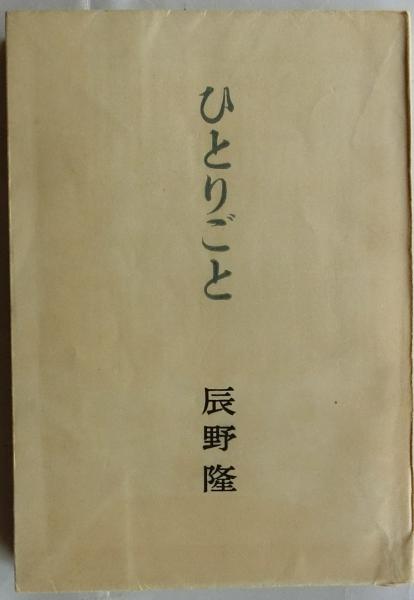 ひとりごと
辰野隆